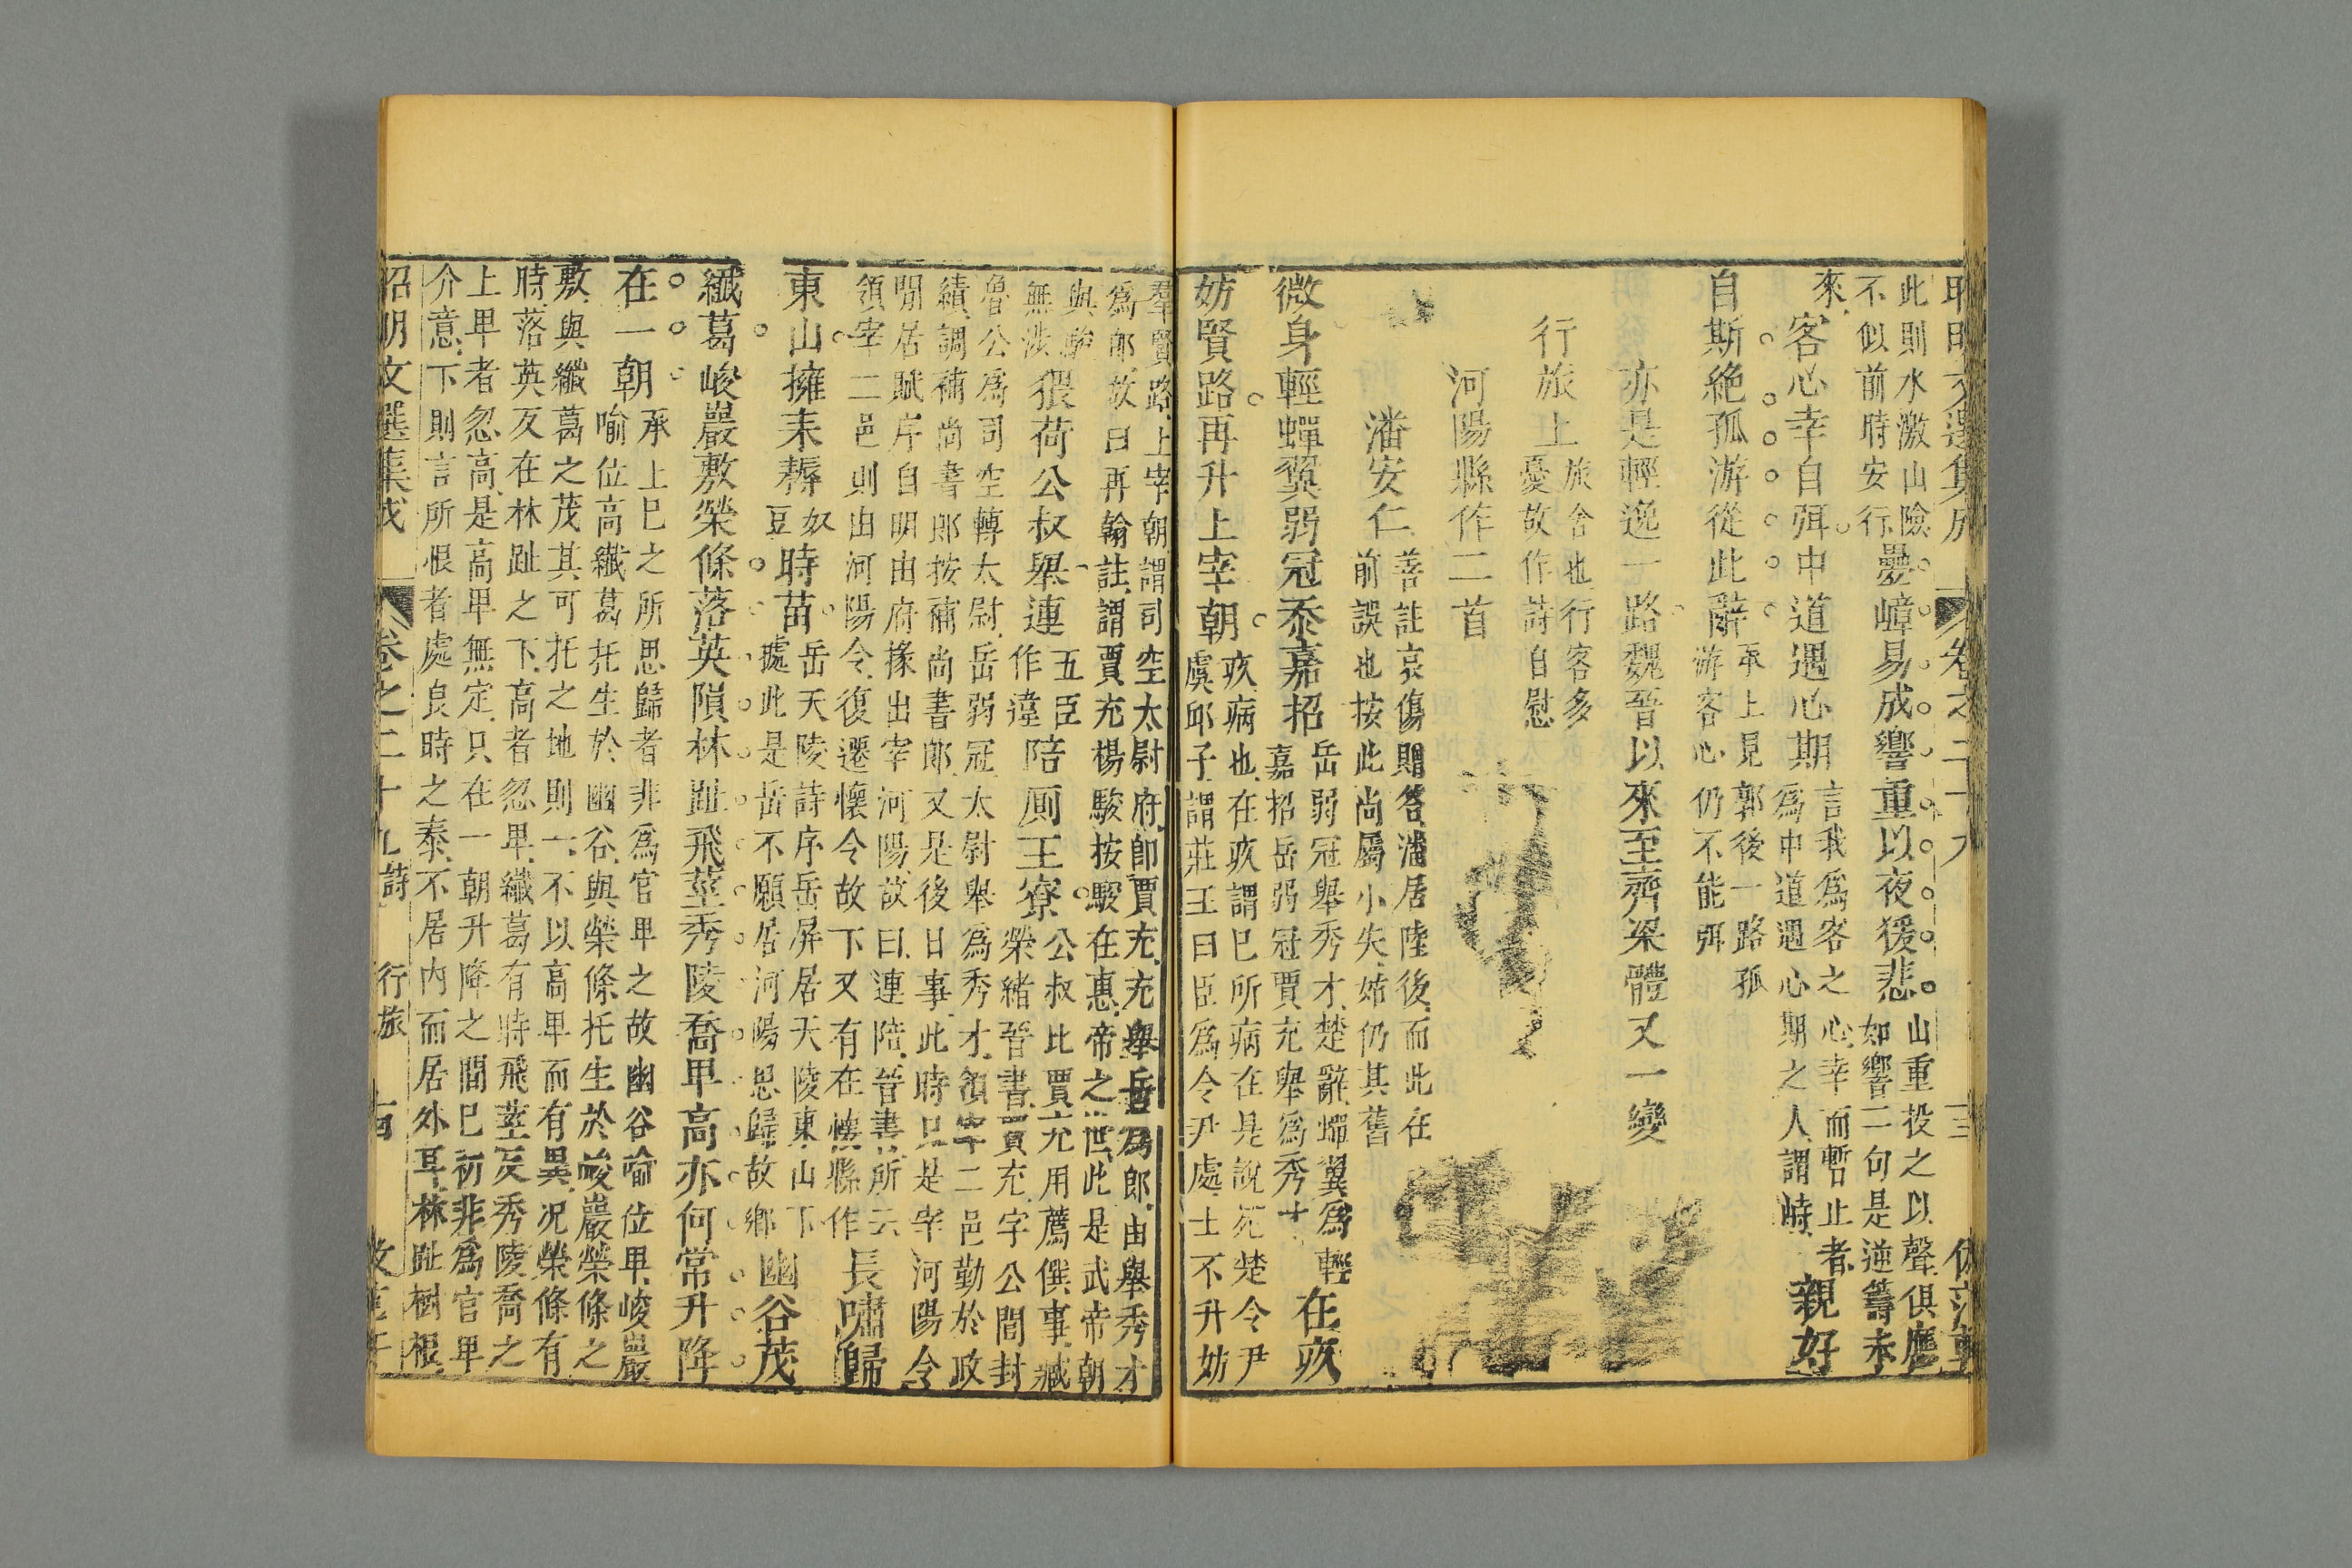 昭明文選集成 卷之二十九 三
此則水激山險
不似前時安行
疊嶂易成響重以夜猨悲
山重投之以聲俱應
如響二句是逆籌未
來
客心幸自弭中道遇心期
言我為客之心幸而暫止者
為中道遇心期之人謂峙
親好
自斯絶孤游從此辭
承上見郭後一路孤
游客心仍不能弭
亦是輕逸一路魏晉以來至齊梁體又一變
行旅上
旅舍也行客多
憂故作詩自慰
河陽縣作二首
潘安仁
善註哀傷贈答潘居陸後而此在
前誤也按此尚屬小失姑仍其舊
微身輕蟬翼弱冠忝嘉招
岳弱冠舉秀才楚辭蟬翼為輕
嘉招岳弱冠賈充舉為秀才
在疚
妨賢路再升上宰朝
疚病也在疚謂已所病在是說苑楚令尹
虞邱子謂莊王曰臣為令尹處士不升妨
羣賢路上宰朝謂司空太尉府卽賈充充舉岳為郎由舉秀才
為郎故曰再翰註謂賈充楊駿按駿在惠帝之世此是武帝朝
與駿
無涉
猥荷公叔舉連
五臣
作違
陪厠王寮
公叔比賈充用薦僎事臧
榮緒晉書賈充字公閭封
魯公為司空轉太尉岳弱冠太尉舉為秀才領宰二邑勤於政
績調補尚書郎按補尚書郎又是後日事此時只是宰河陽令
閒居賦序自明由府掾出宰河陽故曰連陪晉書所云
領宰二邑則由河陽令復遷懷令故下又有在懷縣作
長嘯歸
東山擁耒耨
奴
豆
時苗
岳天陵詩序岳屏居天陵東山下
據此是岳不願居河陽思歸故鄉
幽谷茂
纖葛峻巖敷榮條落英隕林趾飛莖秀陵喬卑高亦何常升降
在一朝
承上巳之所思歸者非為官卑之故幽谷喻位卑峻巖
喻位高纖葛托生於幽谷與榮條托生於峻巖榮條之
敷與纖葛之茂其可托之地則一不以高卑而有異况榮條有
時落英反在林趾之下高者忽卑纖葛有時飛莖反秀陵喬之
上卑者忽高是高卑無定只在一朝升降之間巳初非為官卑
介意下則言所恨者處良時之泰不居内而居外耳林趾樹根
昭明文選集成 卷之二十九詩 行旅